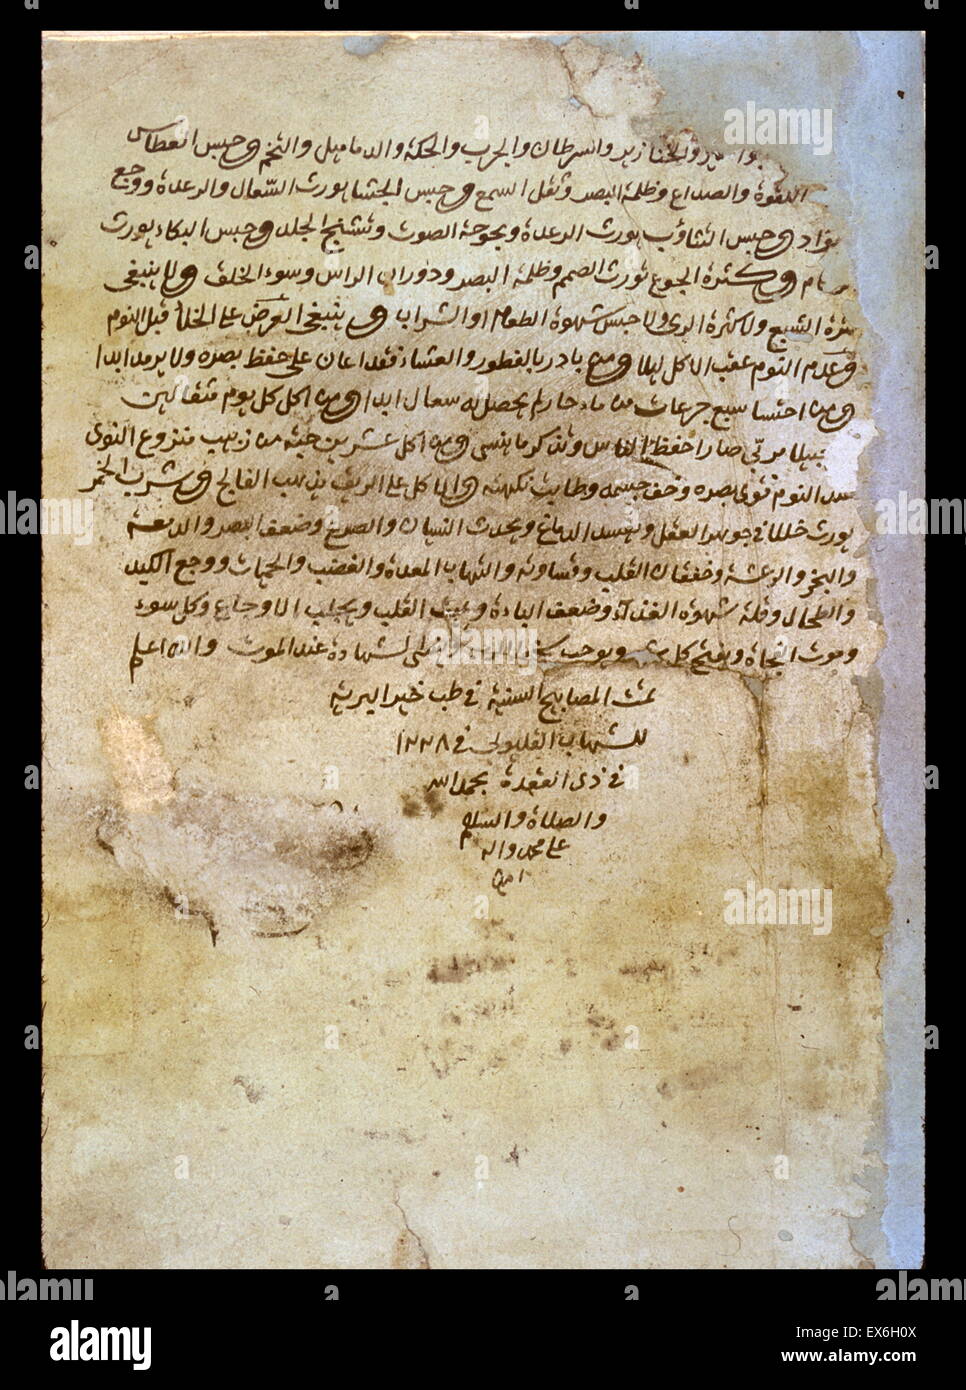 والخنازير والسرطان والجرب والحكة والدماميل والتخم وحبس العطاس
اللقوة والصداع وظلمة البصر وثقل السمع وحبس الجشا يورث السعال والرعدة ووجع
وحبس التثاؤب يورث الرعدة وبحوحة الصوت وتشنج الجلد وحبس البكاء يورث
وكثرة الجوع تورث الصمم وظلمة البصر ودوران الراس وسوء الخلق ولا ينبغي
الشبع ولا كثرة الري ولا حبس شهوة الطعام او الشراب وينبغي العرض على الخلا قبل النوم
وعدم النوم عقب الاكل ليلا ومن بادر بالفطور والعشاء فقد اعان على حفظ بصره ولا يرمد ابدا
ومن احتسا سبع جرعات من ماء حار لم يحصل له سعال ابدا ومن اكل كل يوم مثقالين
صار احفظ الناس وتذكر ما ينسى ومن اكل عشرين حبة من زبيب منزوع النوى
النوم قوي بصره وخف جسمه وطابت نكهته والاكل على الريق يذهب الفالج وشرب الخمر
يورث خللا في جوهر العقل ويفسد الدماغ ويحدث النسيان والصرع وضعف البصر والدمعة
والبخر والرعشة وخفقان القلب وقساوته والتهاب المعدة والغضب والحميات ووجع الكبد
والطحال وقلة شهوة الغداء وضعف الباءة ويميت القلب ويجلب الاوجاع وكل سوء
وموت الفجاة ويفتح كل شر ويوجب الشهادة عند الموت والله اعلم
تمت المصابيح السنية في طب خير البرية
للشهاب القليوبي في ١٢٢٨
في ذي القعدة بحمد الله
والصلاة والسلام
على محمد واله
امين
alamy
EX6H0X
www.alamy.com